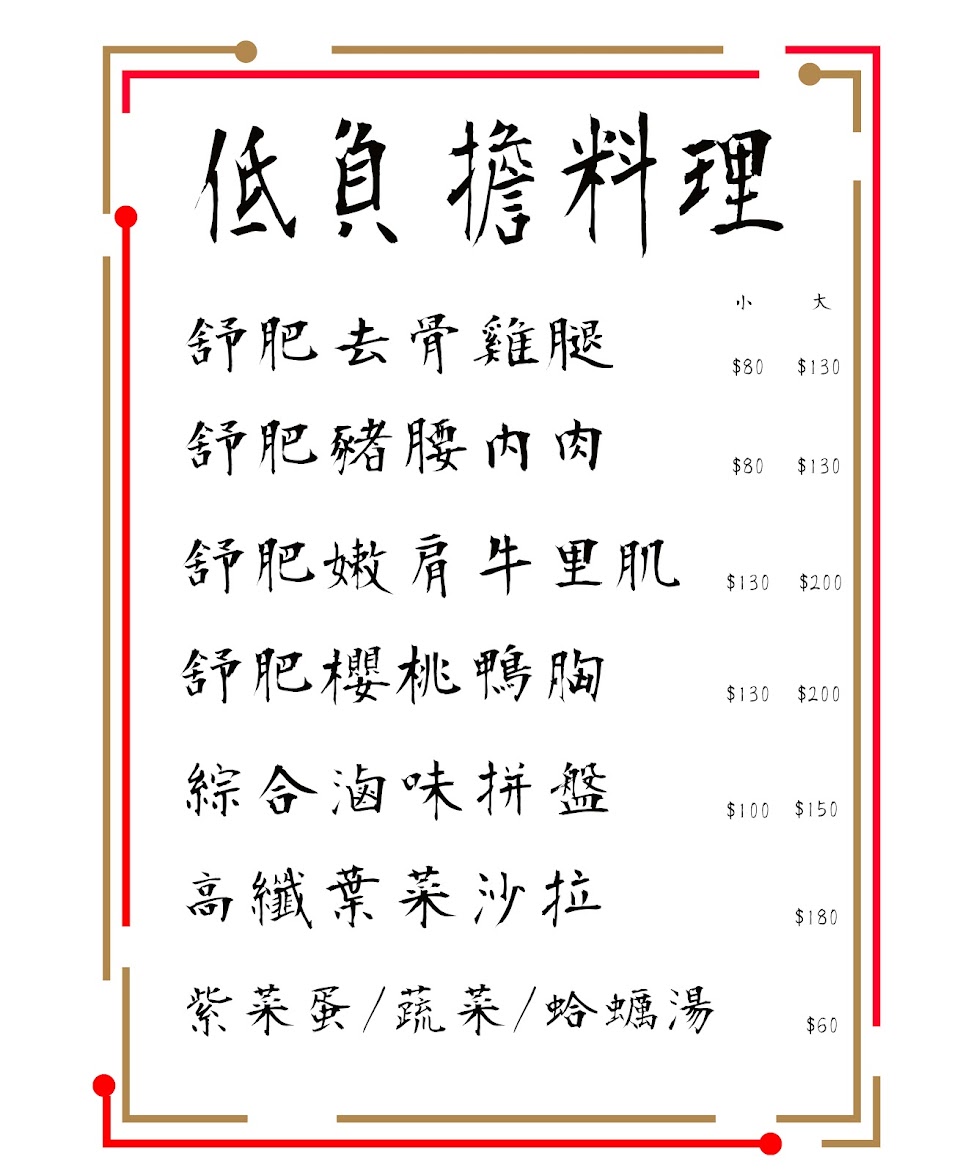 低負擔料理
小 大
舒肥去骨雞腿 $80 $130
舒肥豬腰內肉 $80 $130
舒肥嫩肩牛里肌 $130 $200
舒肥櫻桃鴨胸 $130 $200
綜合滷味拼盤 $100 $150
高纖葉菜沙拉 $180
紫菜蛋/蔬菜/蛤蠣湯 $60